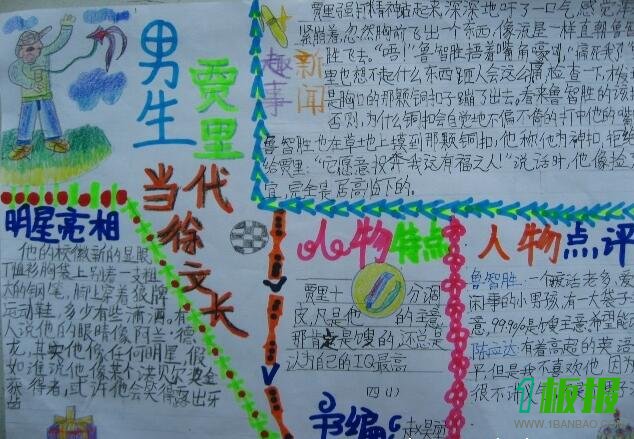 男生
贾里
当代
徐文长
趣事
新闻
贾里强打精神站起来,深深地吁了一口气,感觉
忽然胸前飞出一个东西,像流星一样直朝鲁智
胜飞去。"唔!"鲁智胜捂着嘴角嚎到,"痛死我了"
里也想不起什么东西距人会这么痛,检查一下,
是胸口的那颗铜扣子蹦了出去。看来鲁智胜
否则,为什么铜扣会自觉地不偏不倚的打中他的嘴
鲁智胜也在草地上摸到那颗铜扣,他称他为神扣,拒绝
给贾里:"它愿意投奔我这有福之人!"说话时,他像捡
宜,完全是否高抬下的。
明星亮相
他的校徽新的显眼,
T恤衫胸袋上别着一支粗
大的钢笔,脚上穿着狼牌
运动鞋,多少有些潇洒,有
人说他的眼睛像阿兰·德
龙,其实他像任何明星,假
如谁说他像某个诺贝尔奖金
获得者,式许他会笑得落出牙
齿
人物特点
贾里十 分调
皮,凡是他 的主意
那肯定是馊的,还总是
认为自己的IQ最高
四(1)
书编:赵昊丽
人物点评
鲁智胜:一个废话老多,爱
闲事的小男孩,有一大袋子
意,99.9%是馊主意希望能
陈应达:有着高超的英语
平,但是我不喜欢他,因
很不
1板报
WWW.1BANBAO.COM